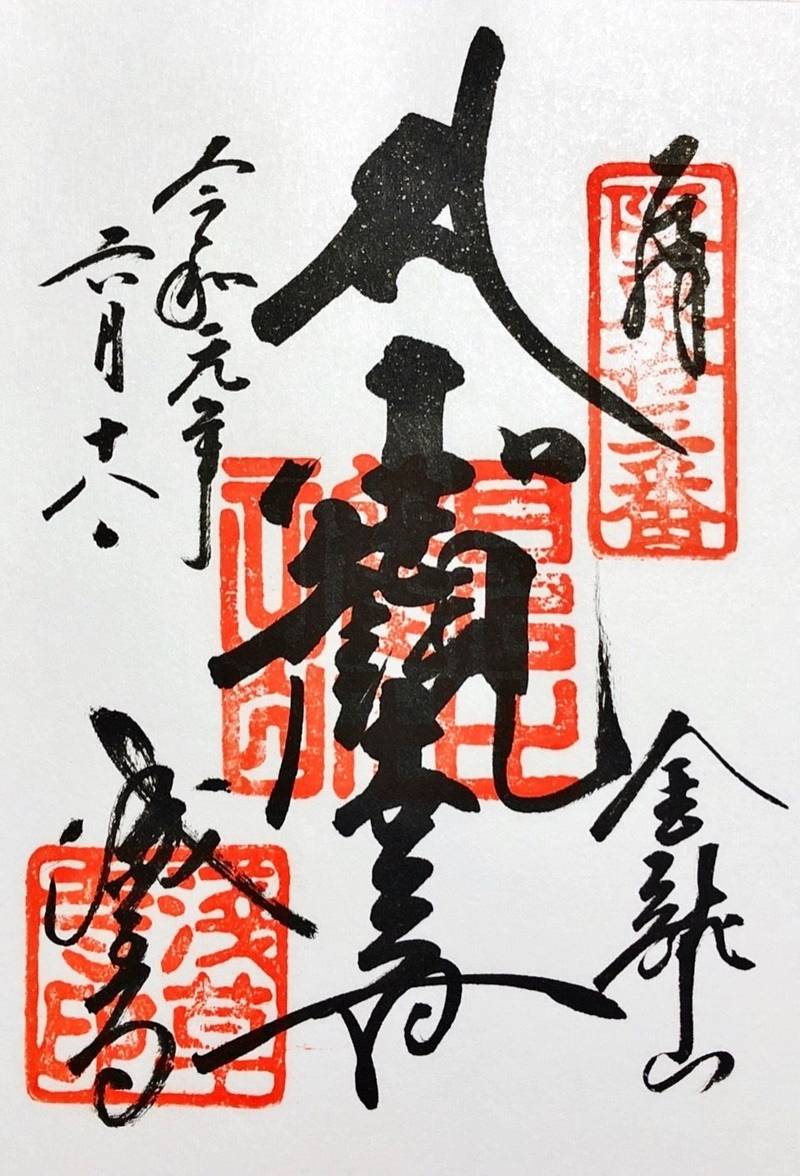 奉拝
阪東拾三番
金龍山
聖観世音
令和元年
六月十八日
浅草寺
浅草
寺印